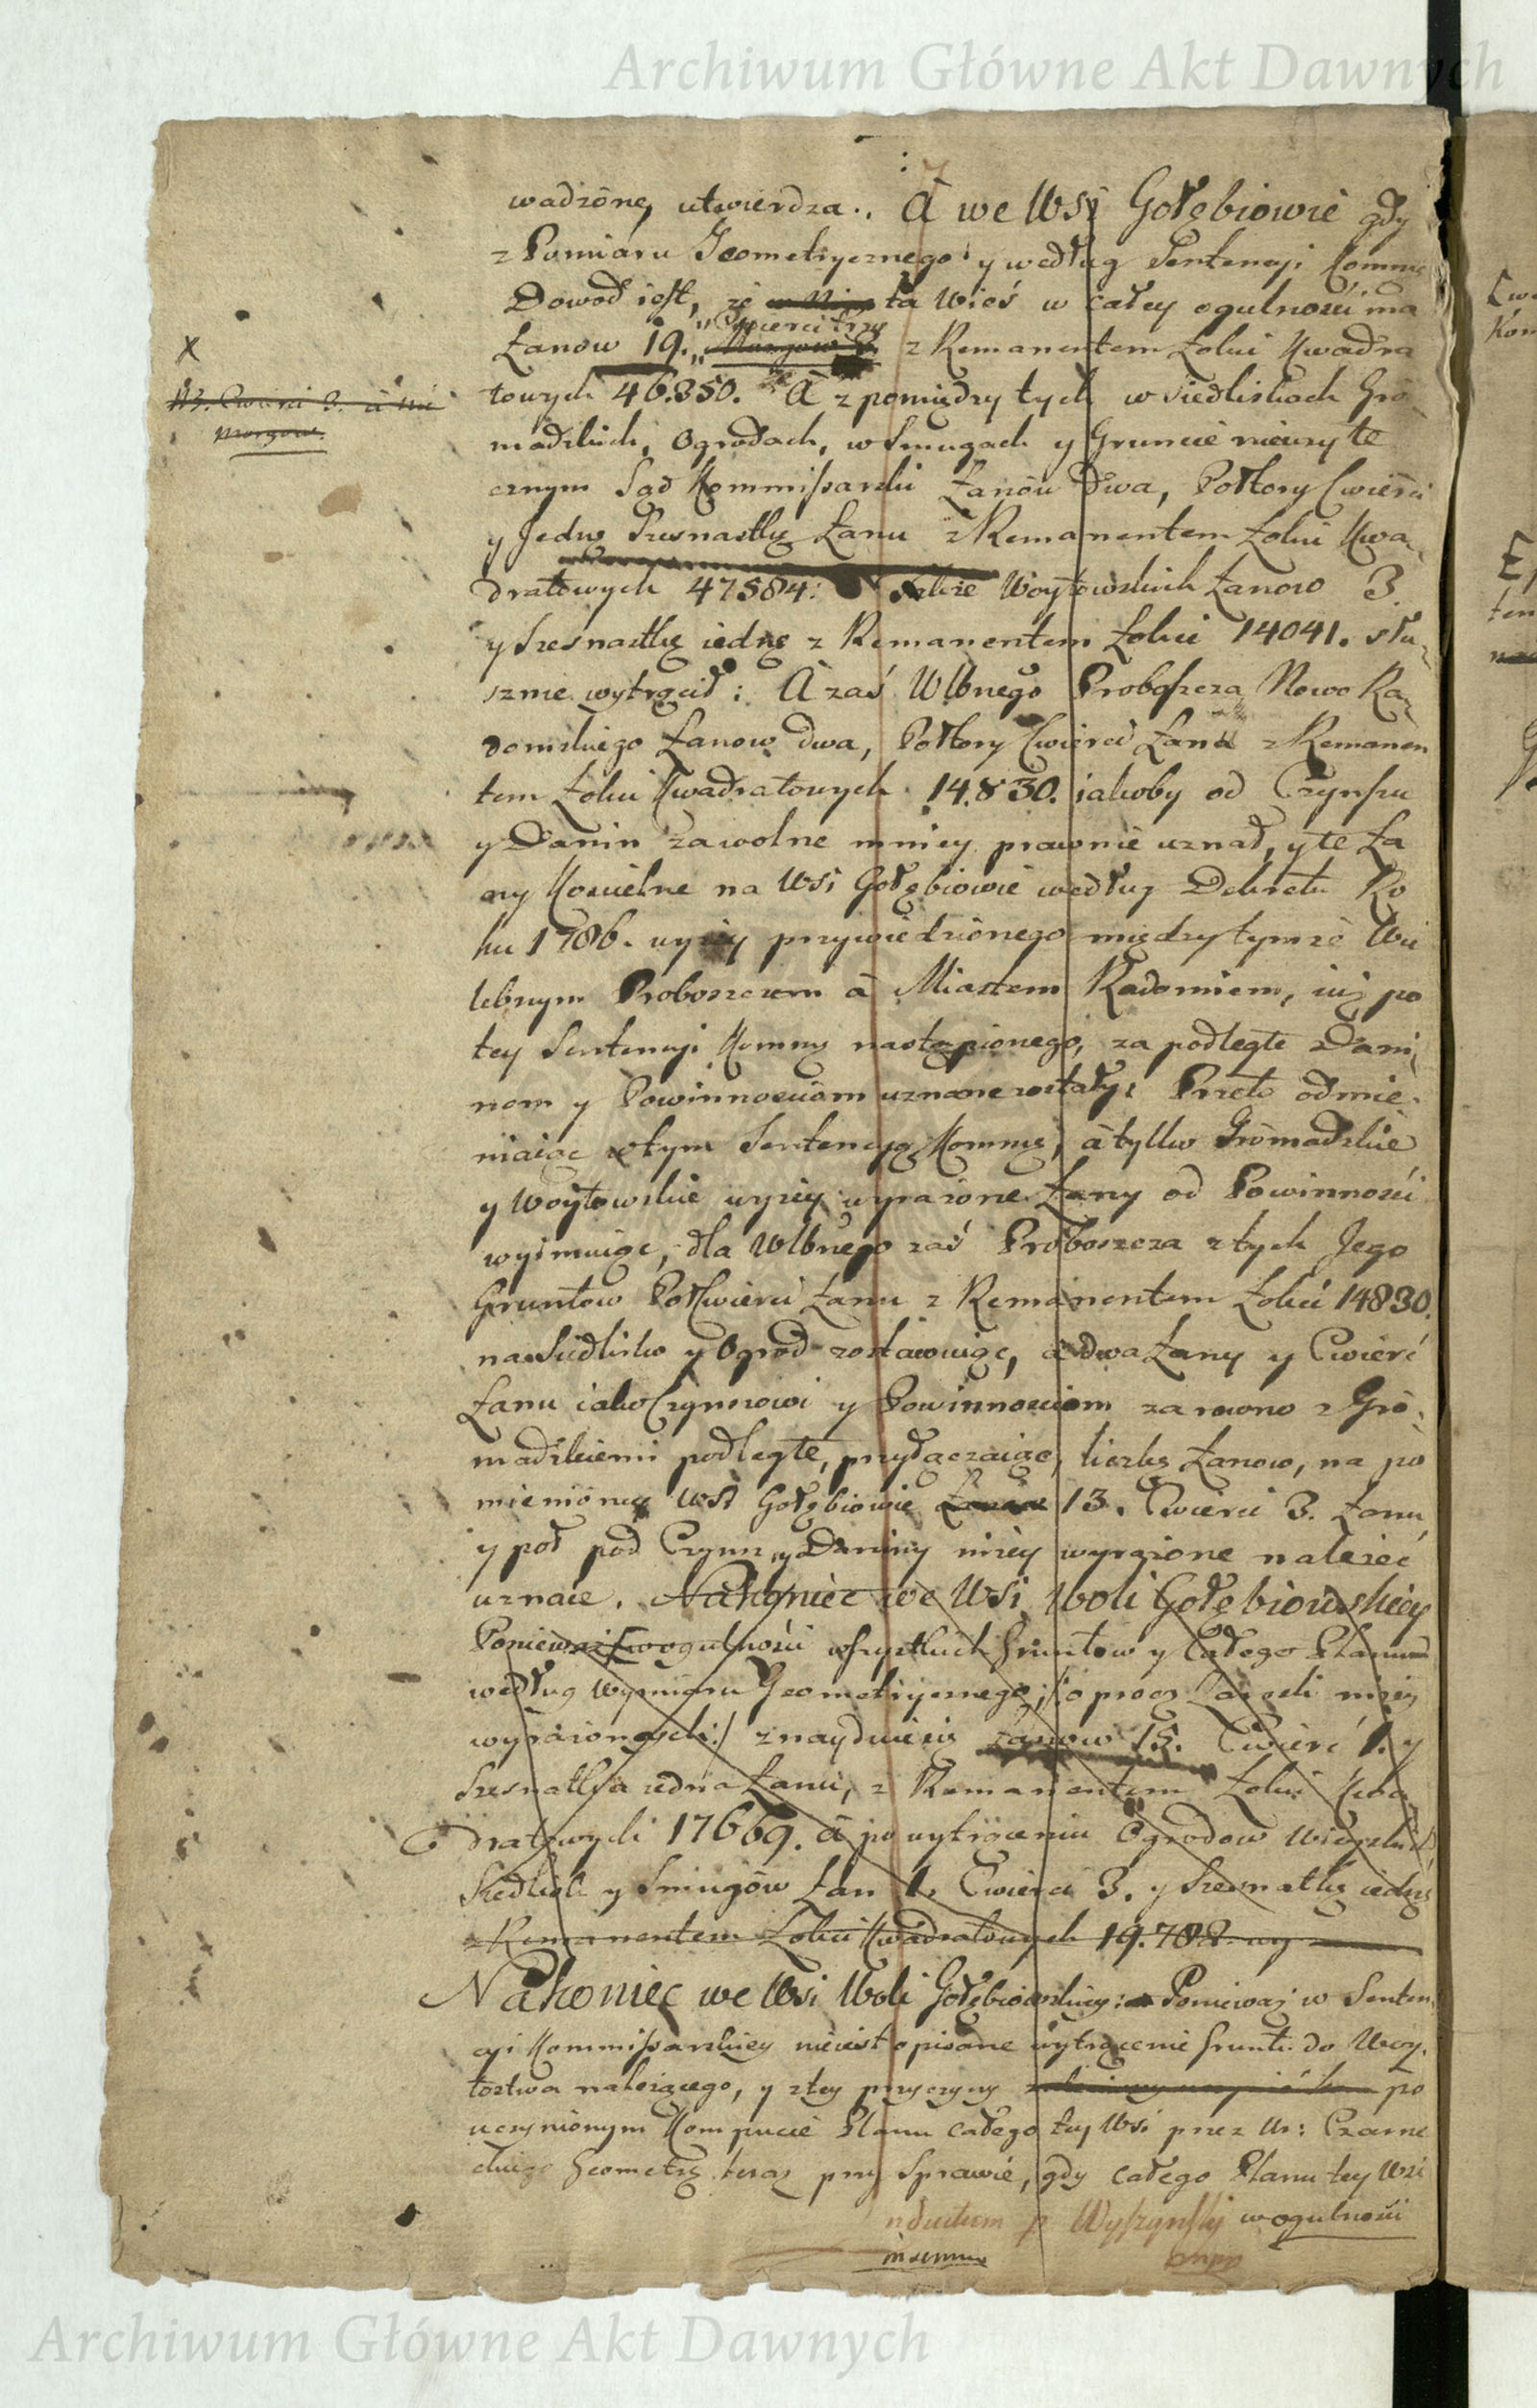 Archiwum Główne Akt Dawnych
wadzoney utwierdza. A we Wsi Gołębiowie gdy
z Pomiaru Geometrycznego y według Sentencyi Kommis
Dowod iest, że ta Wieś w całey ogulności ma
Łanow 19. Cwierci trzy z Remanentem Łokci Kwadra
X
towych 46.350. A z pomiędzy tych w siedliskach Gro
N3. Cwierci 3. à nie
morgow.
madzkich, Ogrodach, w Smugach y Gruncie nieuzyte
cznym Sąd Kommissarski Łanów Dwa, Połtory Cwierci
y Jedną Szesnastkę Łanu z Remanentem Łokci Kwa
dratowych 47584: Woytowskich Łanow 3
y szesnastkę iedną z Remanentem Łokci 14041. słu
sznie wytrącił: A zaś Wlbnego Proboszcza Nowo Ra
domskiego Łanow dwa, Połtory Cwierci Łanu z Remanen
tem Łokci Kwadratowych 14.830. iakoby od Czynszu
y Danin za wolne mniey prawnie uznał, y te Ła
ny Koscielne na Wsi Gołębiowie według Dekretu Ro
ku 1786. wyżey przywiedzionego między tymże Wie
lebnym Proboszczem à Miastem Radomiem, iuż po
tey Sentencyi Kommis nastąpionego, za podległe Dani
nom y Powinnosciom uznane zostały: Przeto odmie
niaiąc w tym Sentencyą Kommis, à tylko Gromadzkie
y Woytowskie wyżey wyrażone Łany od Powinności
wyimuiąc, dla Wlbnego zaś Proboszcza z tych Jego
Gruntow Połćwierci Łanu z Remanentem Łokci 14830.
na Siedlisko y Ogrod zostawuiąc, à dwa Łany y Cwierć
Łanu iako Czynszowi y Powinnosciom zarowno z Gro
madzkiemi podległe, przyłączaiąc, liczbę Łanow, na po
mienioney Wsi Gołębiowie Łanow 13. Cwierci 3. Łanu
y poł pod Czynsz y Daniny niżey wyrażone należeć
uznaie. Nakoniec we Wsi Woli Gołębiowskiey
Ponieważ w ogulności wszystkich Gruntow y Całego Planu
według Wymiaru Geometrycznego, /: oprocz Zarosli niżey
wyrażonych:/ znayduie się Łanow 15. Cwierć 1. y
Szesnastka iedna Łanu, z Remanentem Łokci Kwa
dratowych 17669. à po wytrąceniu Ogrodow Wieyskich
Siedlisk y Smugów Łan 1. Cwierci 3. y Szesnastkę iedną
z Remanentem Łokci Kwadratowych 19.708. wy
Nakoniec we Wsi Woli Gołębiowskiey: Ponieważ w Senten
cyi Kommissarskiey nieiest opisane wytrącenie Gruntu do Woy
tostwa należącego, y z tey przyczyny po
uczynionym Kompucie Planu całego tey Wsi przez Ur: Czarne
ckiego Geometrę teraz przy Sprawie, gdy całego Planu tey Wsi
w ogulności
Archiwum Główne Akt Dawnych